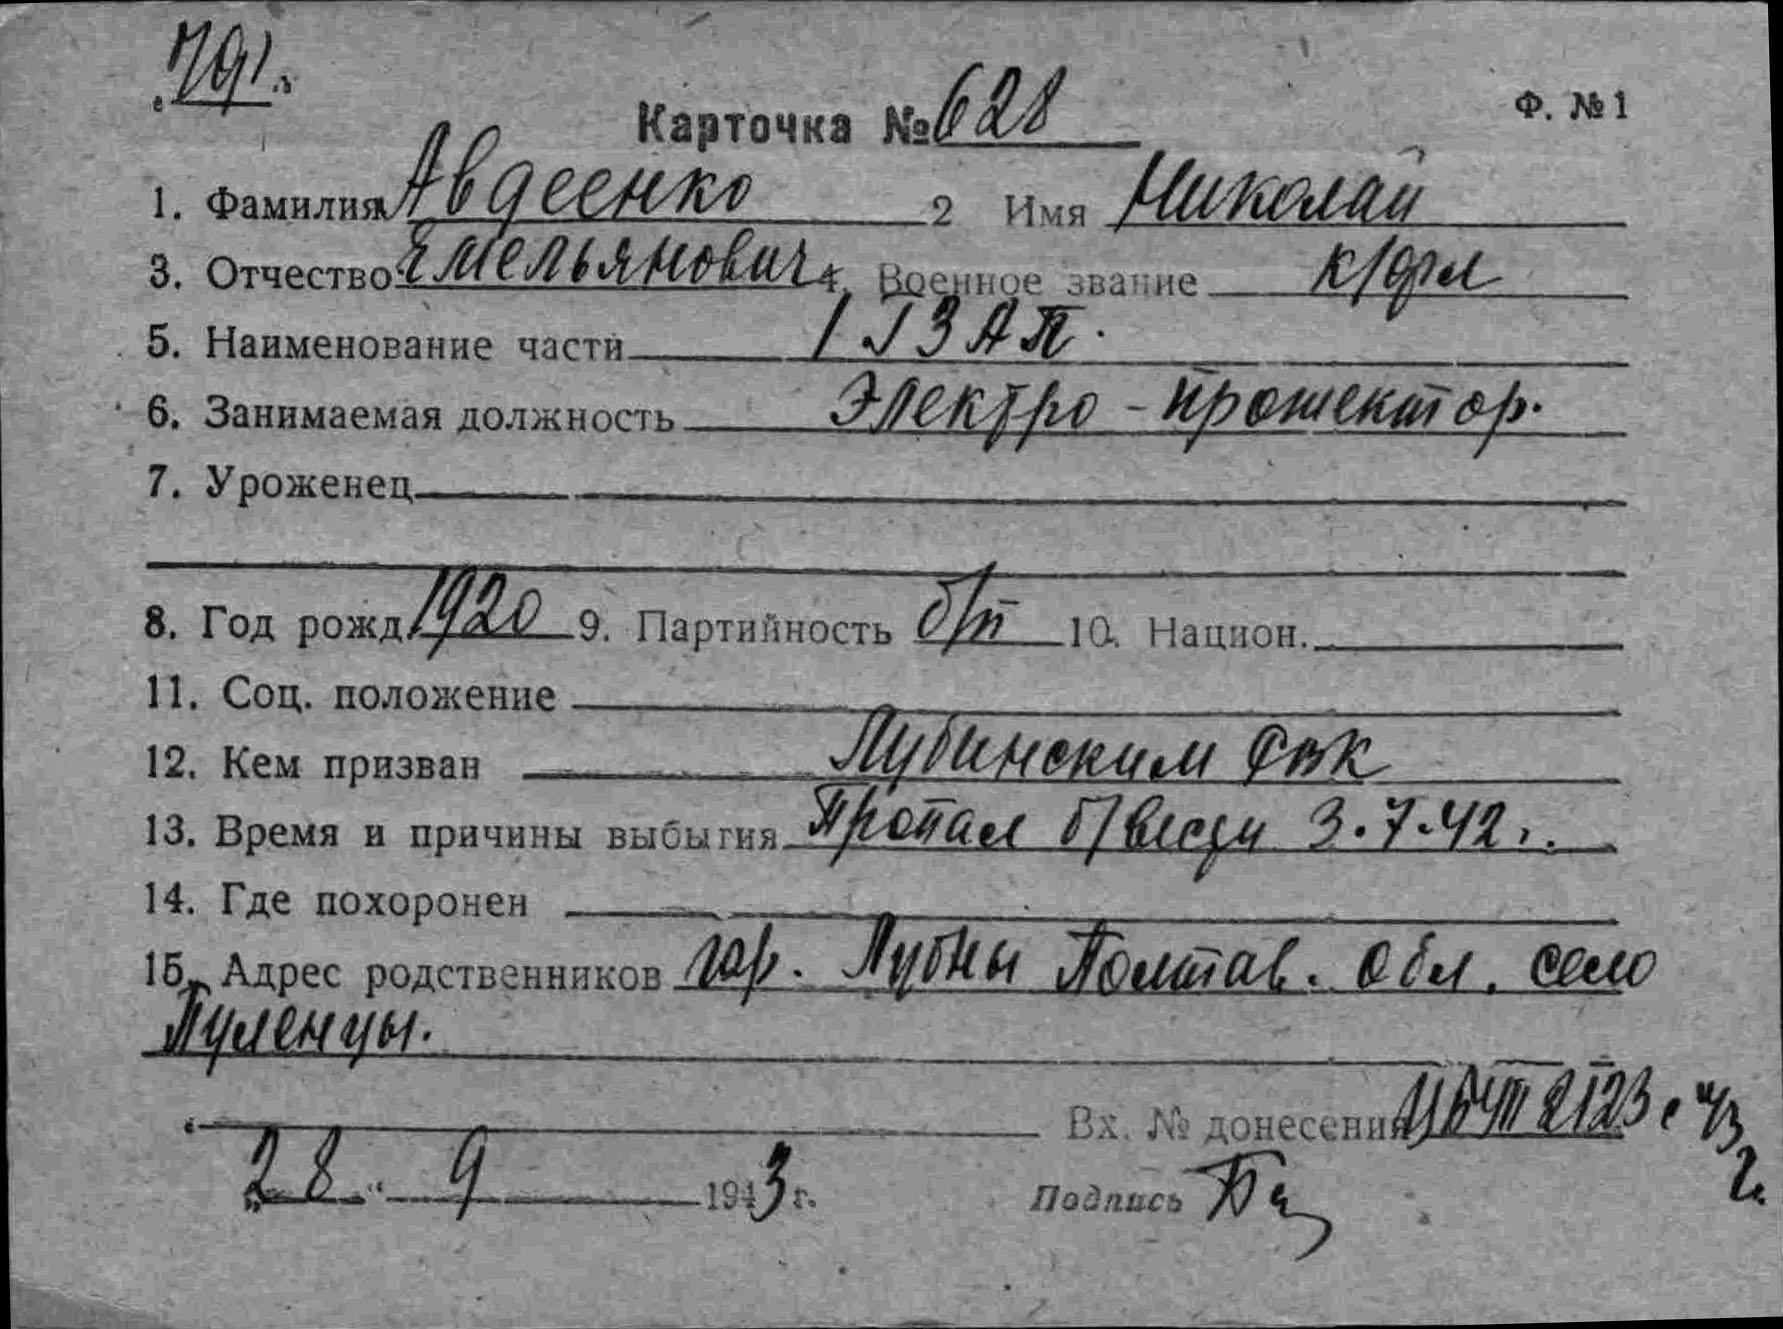 791.
Карточка № 628
Ф. № 1
1. Фамилия Авдеенко 2 Имя Николай
3. Отчество Емельянович 4. Военное звание к/фл
5. Наименование части 1 ГЗАП.
6. Занимаемая должность Электро-прожектор.
7. Уроженец
8. Год рожд. 1920 9. Партийность б/п 10. Национ.
11. Соц. положение
12. Кем призван Лубинским РВК
13. Время и причины выбытия Пропал б/вести 3.7.42г.
14. Где похоронен
15. Адрес родственников гор. Лубны Полтав. обл. село
Пуленцы.
Вх. № донесения 2123 с 43
г.
28 9 1943 г. Подпись